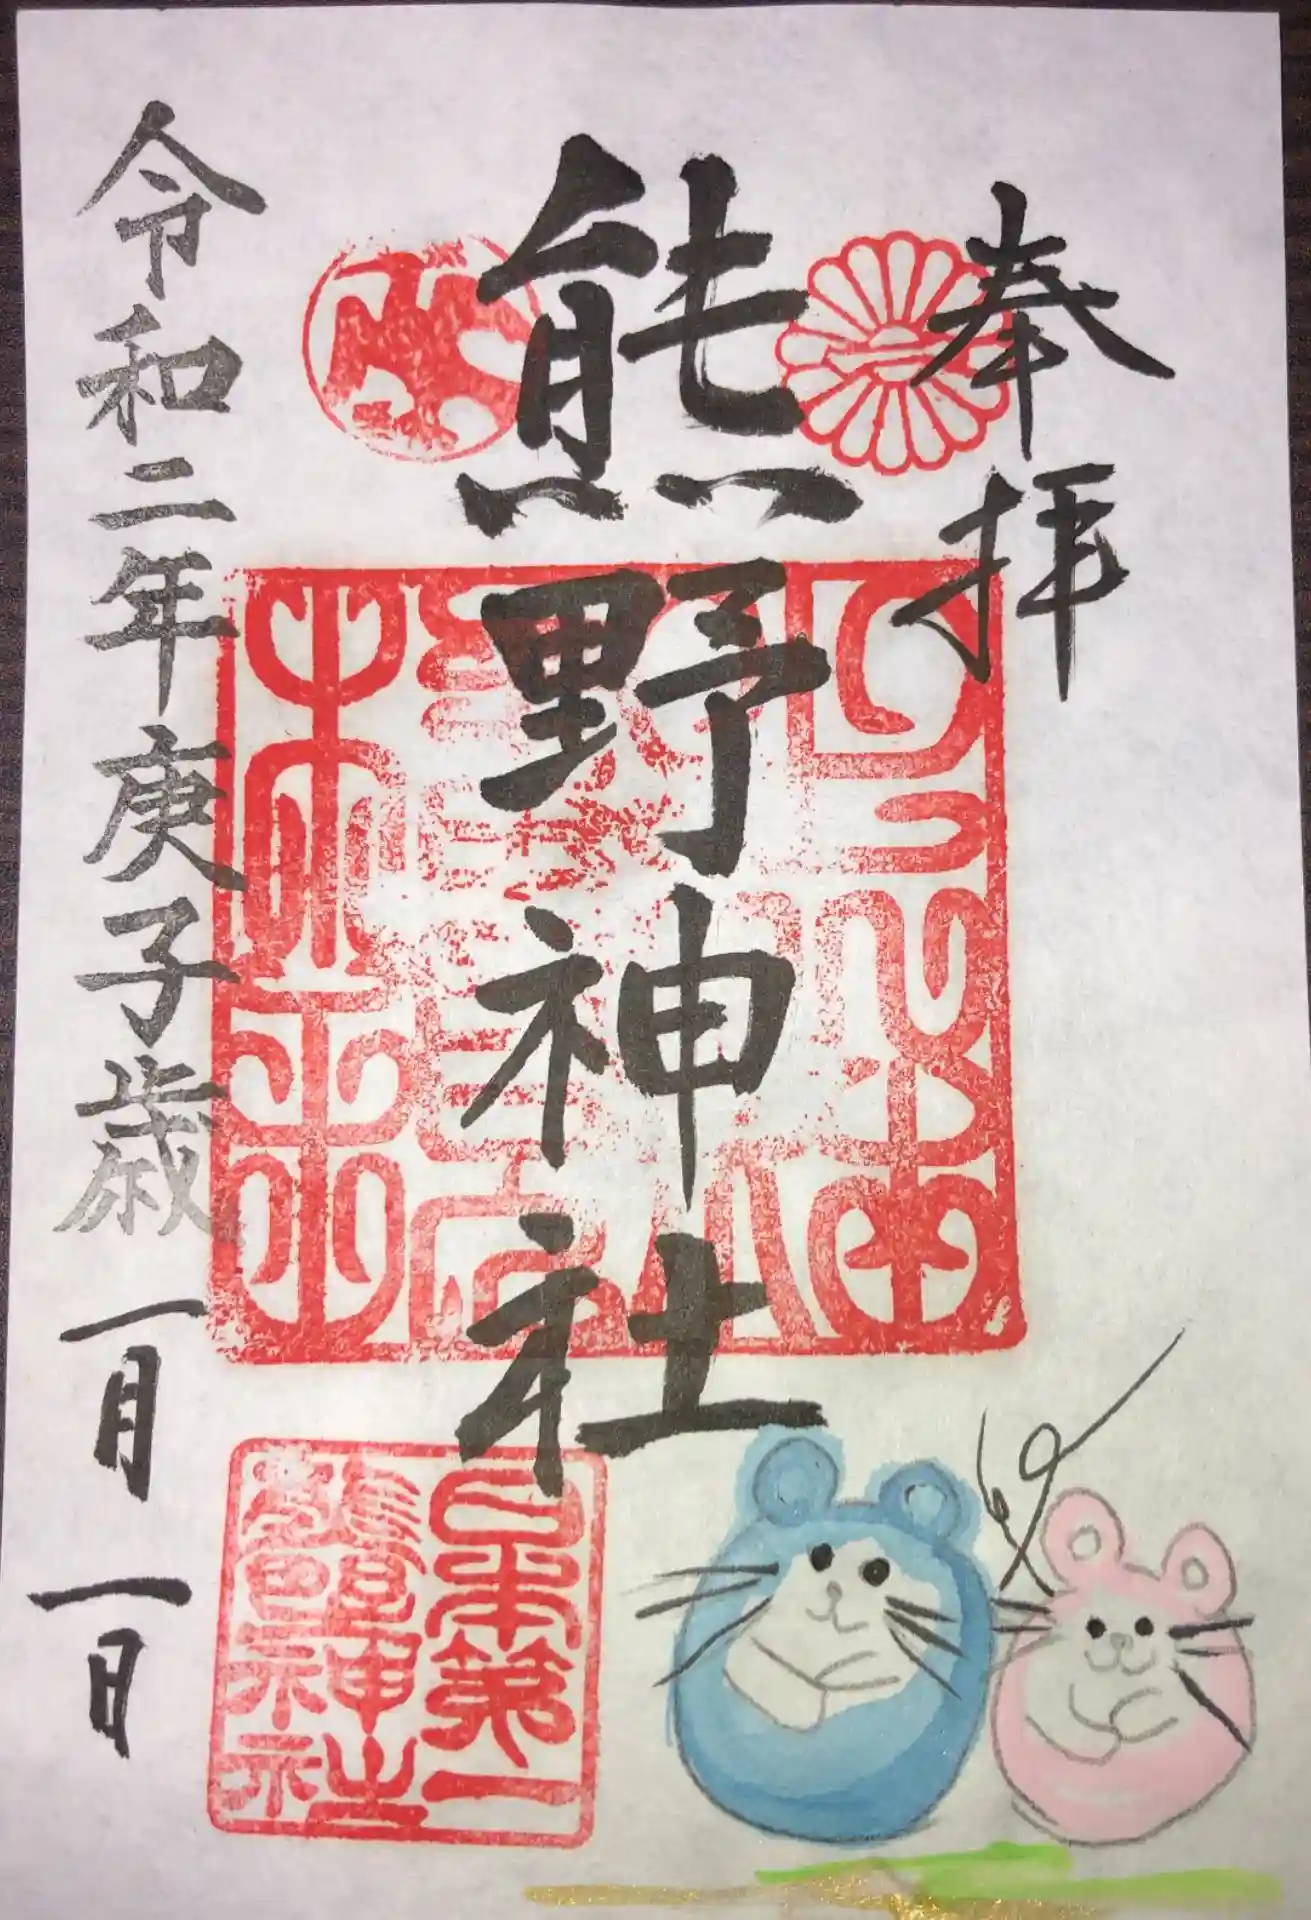 奉拝
熊野神社
令和二年庚子歳一月一日
日本第一
熊野神社